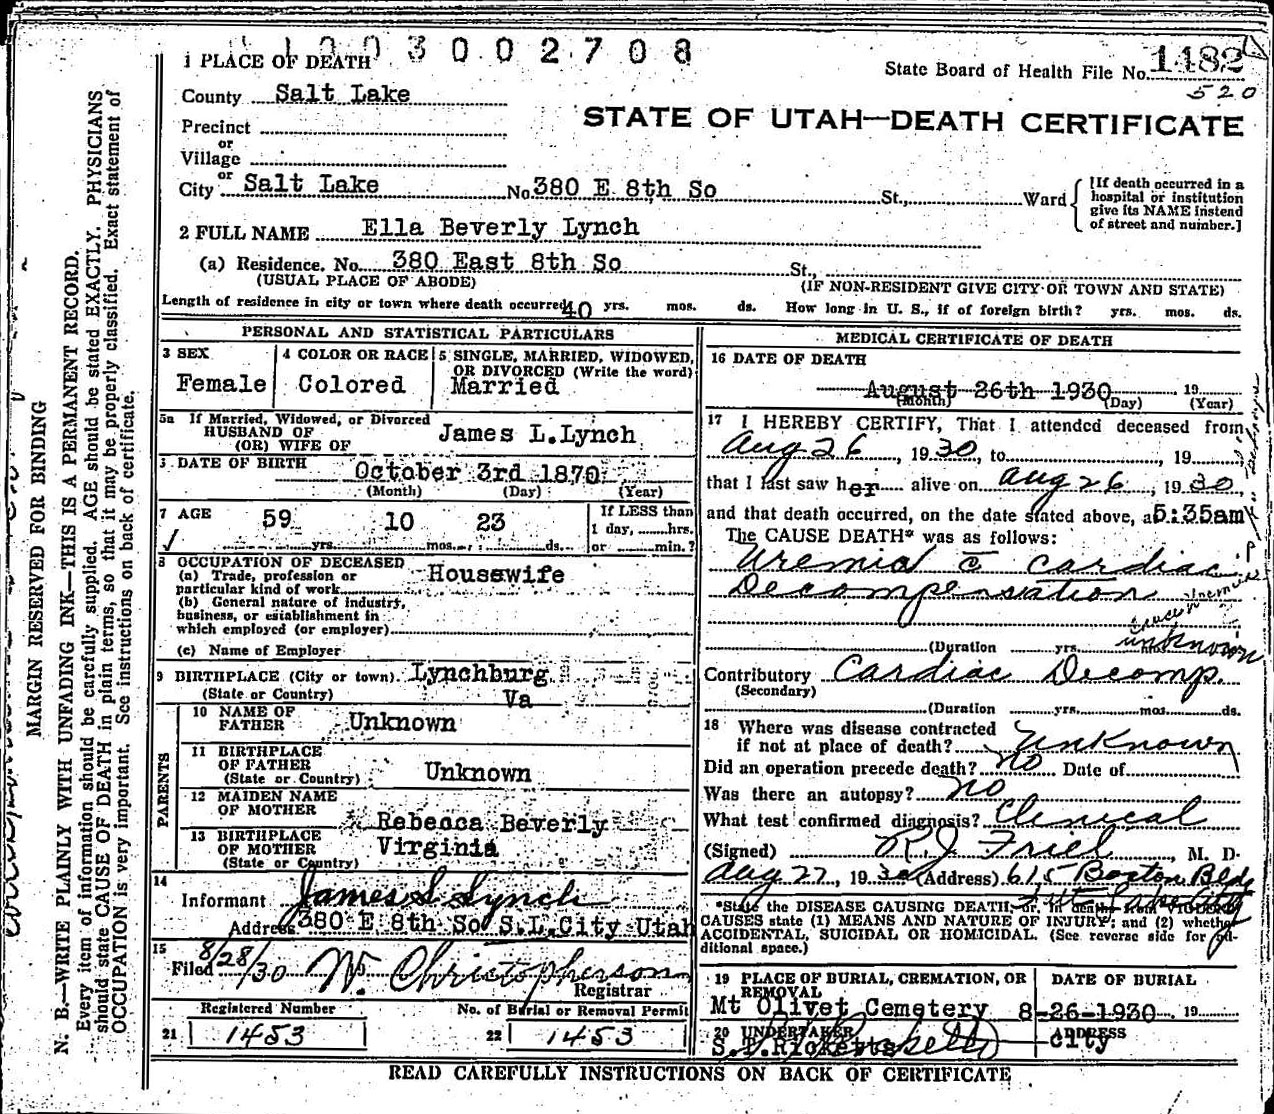 1003002708
1 PLACE OF DEATH
State Board of Health File No. 1482
520
County Salt Lake
STATE OF UTAH—DEATH CERTIFICATE
Precinct
or
Village
or
City Salt Lake No 380 E 8th So St., Ward
[If death occurred in a
hospital or institution
give its NAME instead
of street and number.]
2 FULL NAME Ella Beverly Lynch
(a) Residence. No. 380 East 8th So St.,
(USUAL PLACE OF ABODE) (IF NON-RESIDENT GIVE CITY OR TOWN AND STATE)
Length of residence in city or town where death occurred 40 yrs. mos. ds. How long in U. S., if of foreign birth? yrs. mos. ds.
PERSONAL AND STATISTICAL PARTICULARS
3 SEX
Female
4 COLOR OR RACE
Colored
5 SINGLE, MARRIED, WIDOWED,
OR DIVORCED (Write the word)
Married
5a If Married, Widowed, or Divorced
HUSBAND OF
(OR) WIFE OF James L.Lynch
DATE OF BIRTH October 3rd 1870
(Month) (Day) (Year)
7 AGE 59 10 23
yrs. mos. ds.
If LESS than
1 day, hrs.
or min.?
8 OCCUPATION OF DECEASED
(a) Trade, profession or
particular kind of work Housewife
(b) General nature of industry,
business, or establishment in
which employed (or employer)
(c) Name of Employer
9 BIRTHPLACE (City or town) Lynchburg
(State or Country) Va
PARENTS
10 NAME OF
FATHER Unknown
11 BIRTHPLACE
OF FATHER
(State or Country) Unknown
12 MAIDEN NAME
OF MOTHER Rebecca Beverly
13 BIRTHPLACE
OF MOTHER Virginia
(State or Country)
14
Informant James L Lynch
Address 380 E 8th So S.L.City Utah
15
Filed 8/28/30 W. Christopherson
Registrar
Registered Number No. of Burial or Removal Permit
21 1453 22 1453
MEDICAL CERTIFICATE OF DEATH
16 DATE OF DEATH
August 26th 1930 19
(Month) (Day) (Year)
17 I HEREBY CERTIFY, That I attended deceased from
Aug 26, 1930, to , 19
that I last saw her alive on Aug 26, 1930,
and that death occurred, on the date stated above, at 5:35am
The CAUSE DEATH* was as follows:
Uremia c̄ cardiac
Decompensation
(Duration yrs. unknown
Contributory Cardiac Decomp.
(Secondary)
(Duration yrs. mos. ds.
18 Where was disease contracted
if not at place of death? unknown
Did an operation precede death? no Date of
Was there an autopsy? no
What test confirmed diagnosis? Clenical
(Signed) R.J. Friel, M. D.
Aug 27, 1930 (Address) 615 Boston Bldg
*State the DISEASE CAUSING DEATH, or in deaths from VIOLENT
CAUSES state (1) MEANS AND NATURE OF INJURY; and (2) whether
ACCIDENTAL, SUICIDAL OR HOMICIDAL. (See reverse side for ad-
ditional space.)
19 PLACE OF BURIAL, CREMATION, OR
REMOVAL
Mt Olivet Cemetery
DATE OF BURIAL
8-26-1930 19
20 UNDERTAKER
S.T.Ricketts
ADDRESS
city
READ CAREFULLY INSTRUCTIONS ON BACK OF CERTIFICATE
MARGIN RESERVED FOR BINDING
N. B.—WRITE PLAINLY WITH UNFADING INK—THIS IS A PERMANENT RECORD.
Every item of information should be carefully supplied. AGE should be stated EXACTLY. PHYSICIANS
should state CAUSE OF DEATH in plain terms, so that it may be properly classified. Exact statement of
OCCUPATION is very important. See instructions on back of certificate.